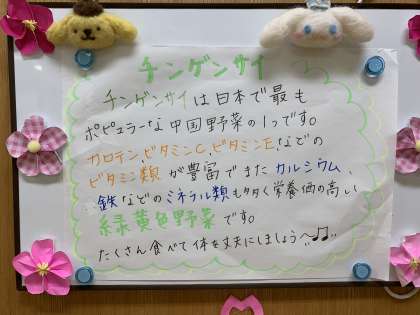 チンゲンサイ
チンゲンサイは日本で最も
ポピュラーな中国野菜の1つです。
カロテン、ビタミンC、ビタミンEなどの
ビタミン類が豊富でまたカルシウム、
鉄などのミネラル類も多く栄養価の高い
緑黄色野菜です。
たくさん食べて体を丈夫にしましょう〜♫♪